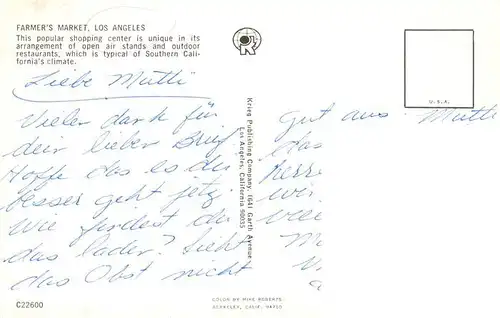 FARMER'S MARKET, LOS ANGELES
This popular shopping center is unique in its
arrangement of open air stands and outdoor
restaurants, which is typical of Southern Cali-
fornia's climate.
Liebe Mutti
Vielen dank für
dein lieber Brief
Hoffe das es dir
besser geht jetz.
Wie findest du
das laden? Sieht
das Obst nicht
C22600
Krieg Publishing Company, 1641 Garth Avenue
Los Angeles, California 90035
U.S.A.
gut aus. Mutti
das
wir
COLOR BY MIKE ROBERTS
BERKELEY, CALIF. 94710